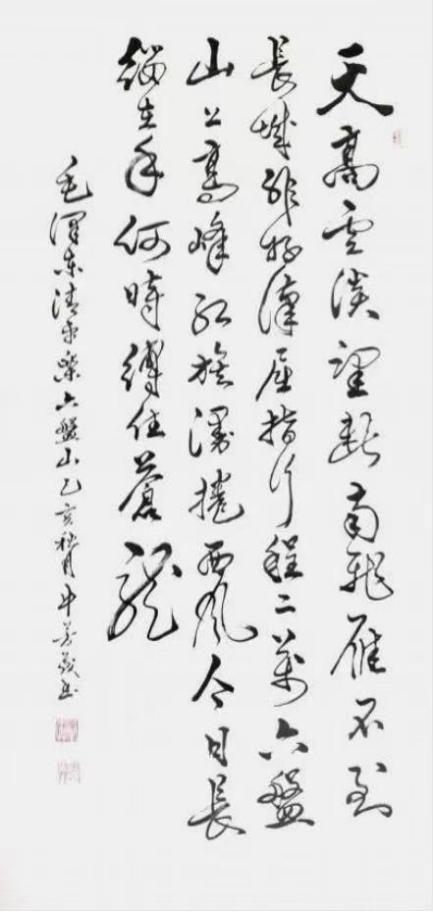 天高雲淡望斷南飛雁不到
長城非好漢屈指行程二萬六盤
山上高峰紅旗漫捲西風今日長
纓在手何時縛住蒼龍
毛澤東清平樂六盤山乙亥秋月牛芳書